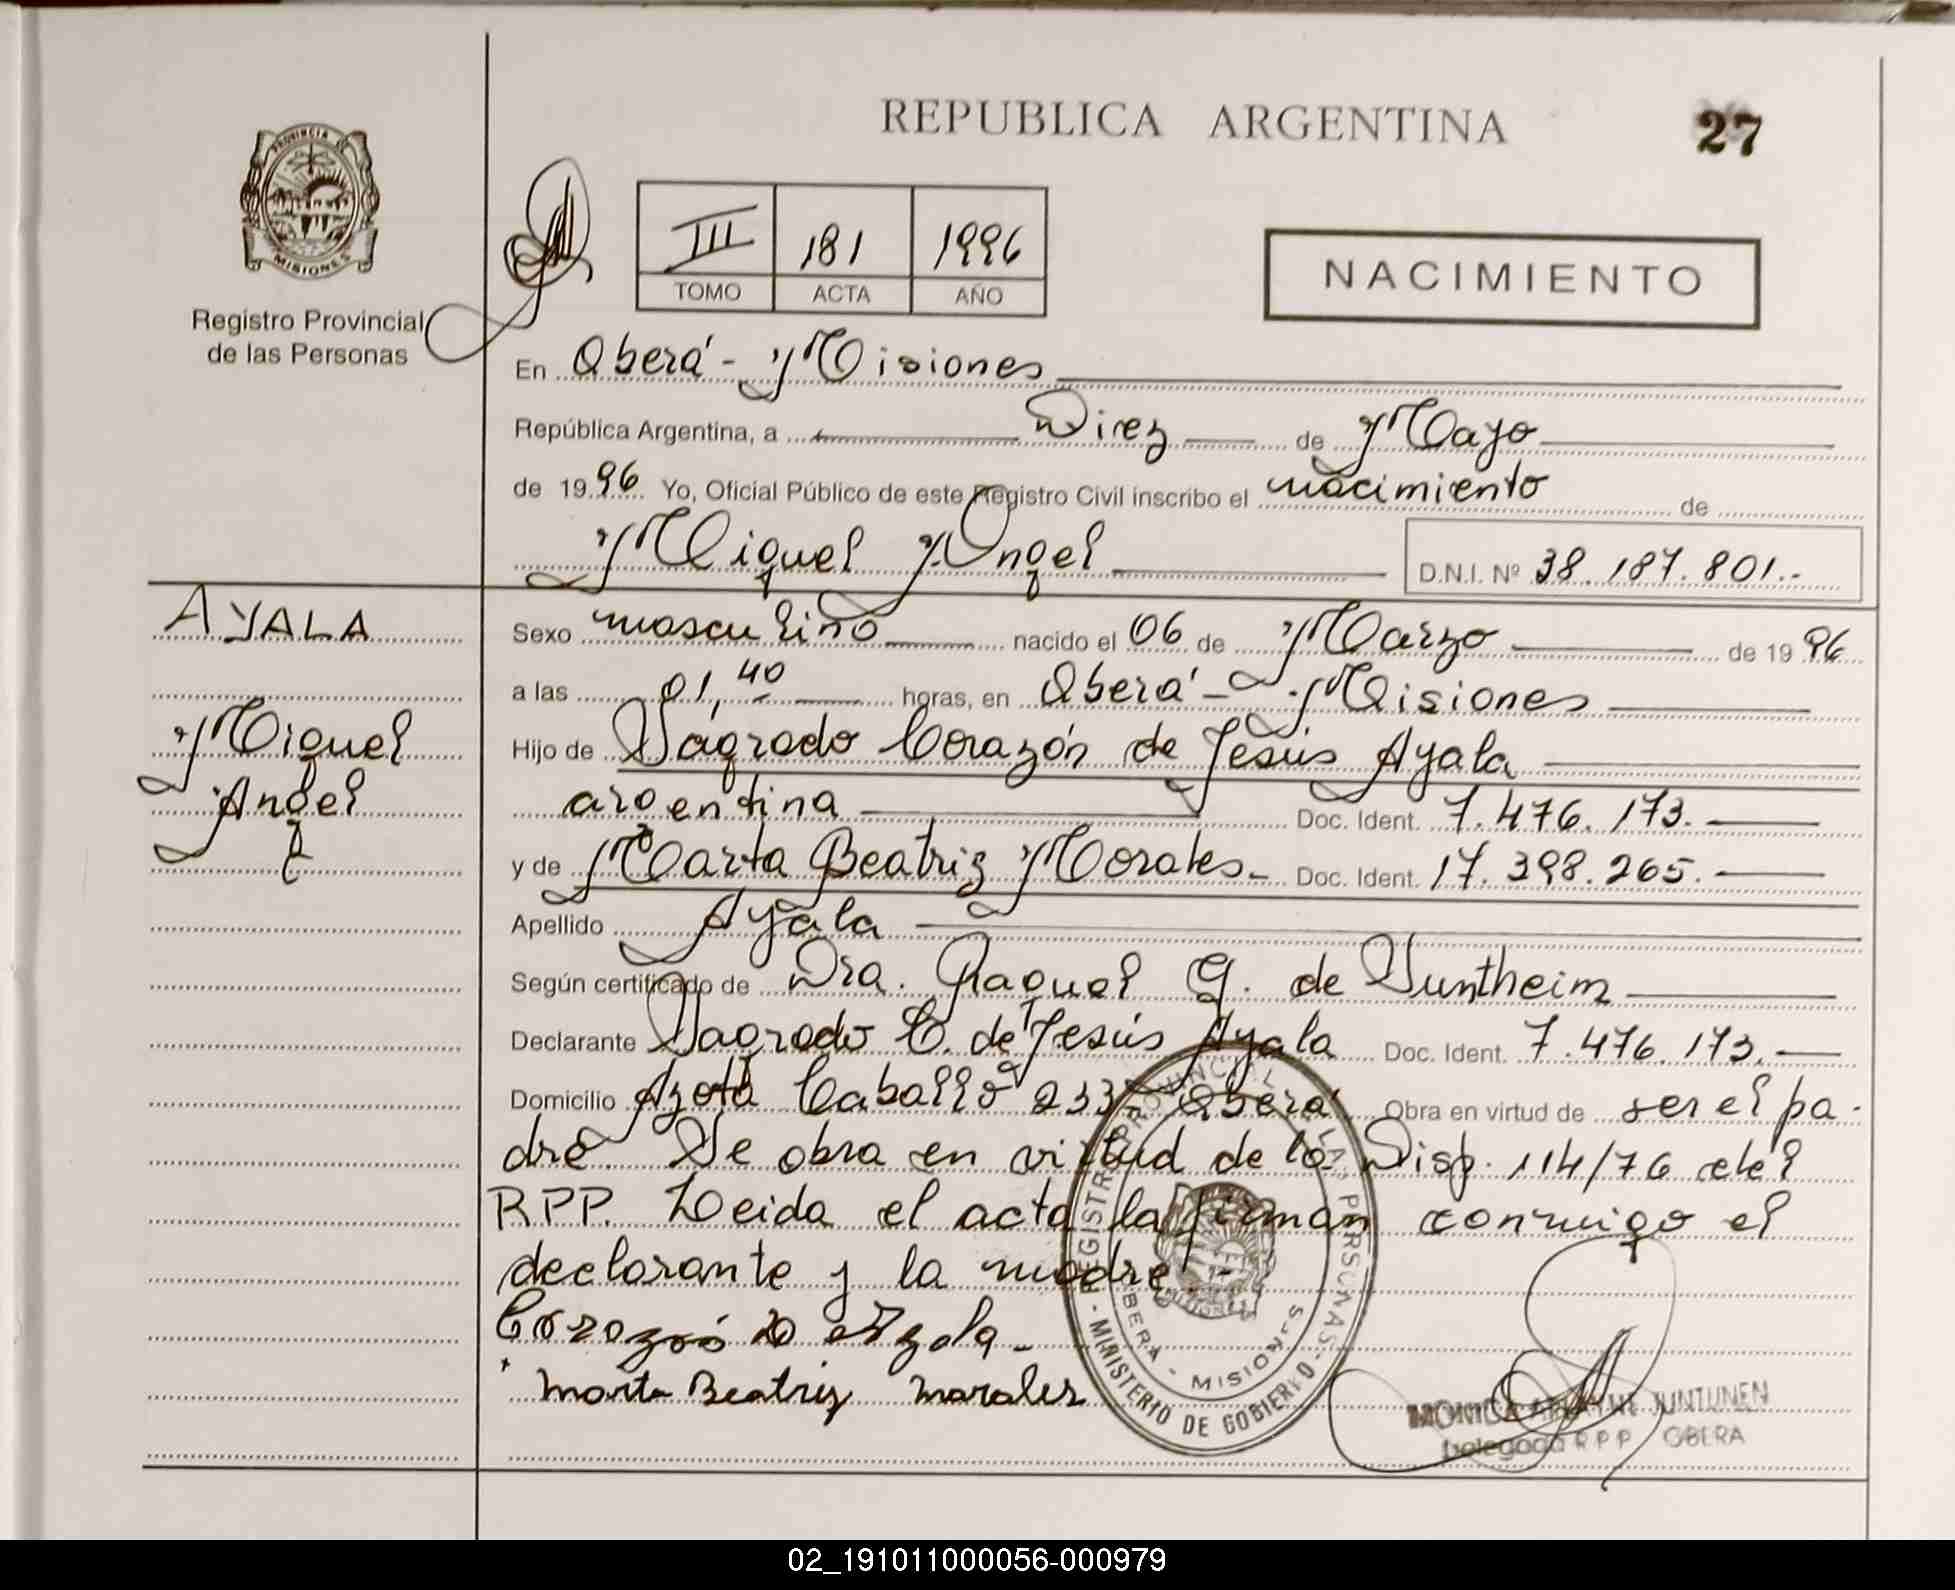 REPUBLICA ARGENTINA
27
PROVINCIA
MISIONES
Registro Provincial
de las Personas
III 181 1996
TOMO ACTA AÑO
NACIMIENTO
En Oberá - Misiones
República Argentina, a Diez de Mayo
de 1996 Yo, Oficial Público de este Registro Civil inscribo el nacimiento de
Miguel Angel D.N.I. Nº 38.187.801.-
AYALA
Miguel
Angel
Sexo masculino nacido el 06 de Marzo de 1996
a las 01,40 horas, en Oberá - Misiones
Hijo de Sagrado Corazón de Jesús Ayala
argentina Doc. Ident. 7.476.173.
y de Marta Beatriz Morales- Doc. Ident. 17.398.265.
Apellido Ayala
Según certificado de Dra. Raquel G. de Suntheim
Declarante Sagrado C. de Jesús Ayala Doc. Ident. 7.476.173.
Domicilio Caballo Oberá Obra en virtud de ser el pa-
dre. Se obra en virtud de la Disp. 114/76 del
RPP. Leida el acta la firman conmigo el
declarante y la madre.-
Ayala-
Marta Beatriz Morales
REGISTRO PROVINCIAL DE LAS PERSONAS
OBERA - MISIONES
- MINISTERIO DE GOBIERNO -
MISIONES
MONICA JUNTUNEN
Delegada RPP OBERA
02_191011000056-000979